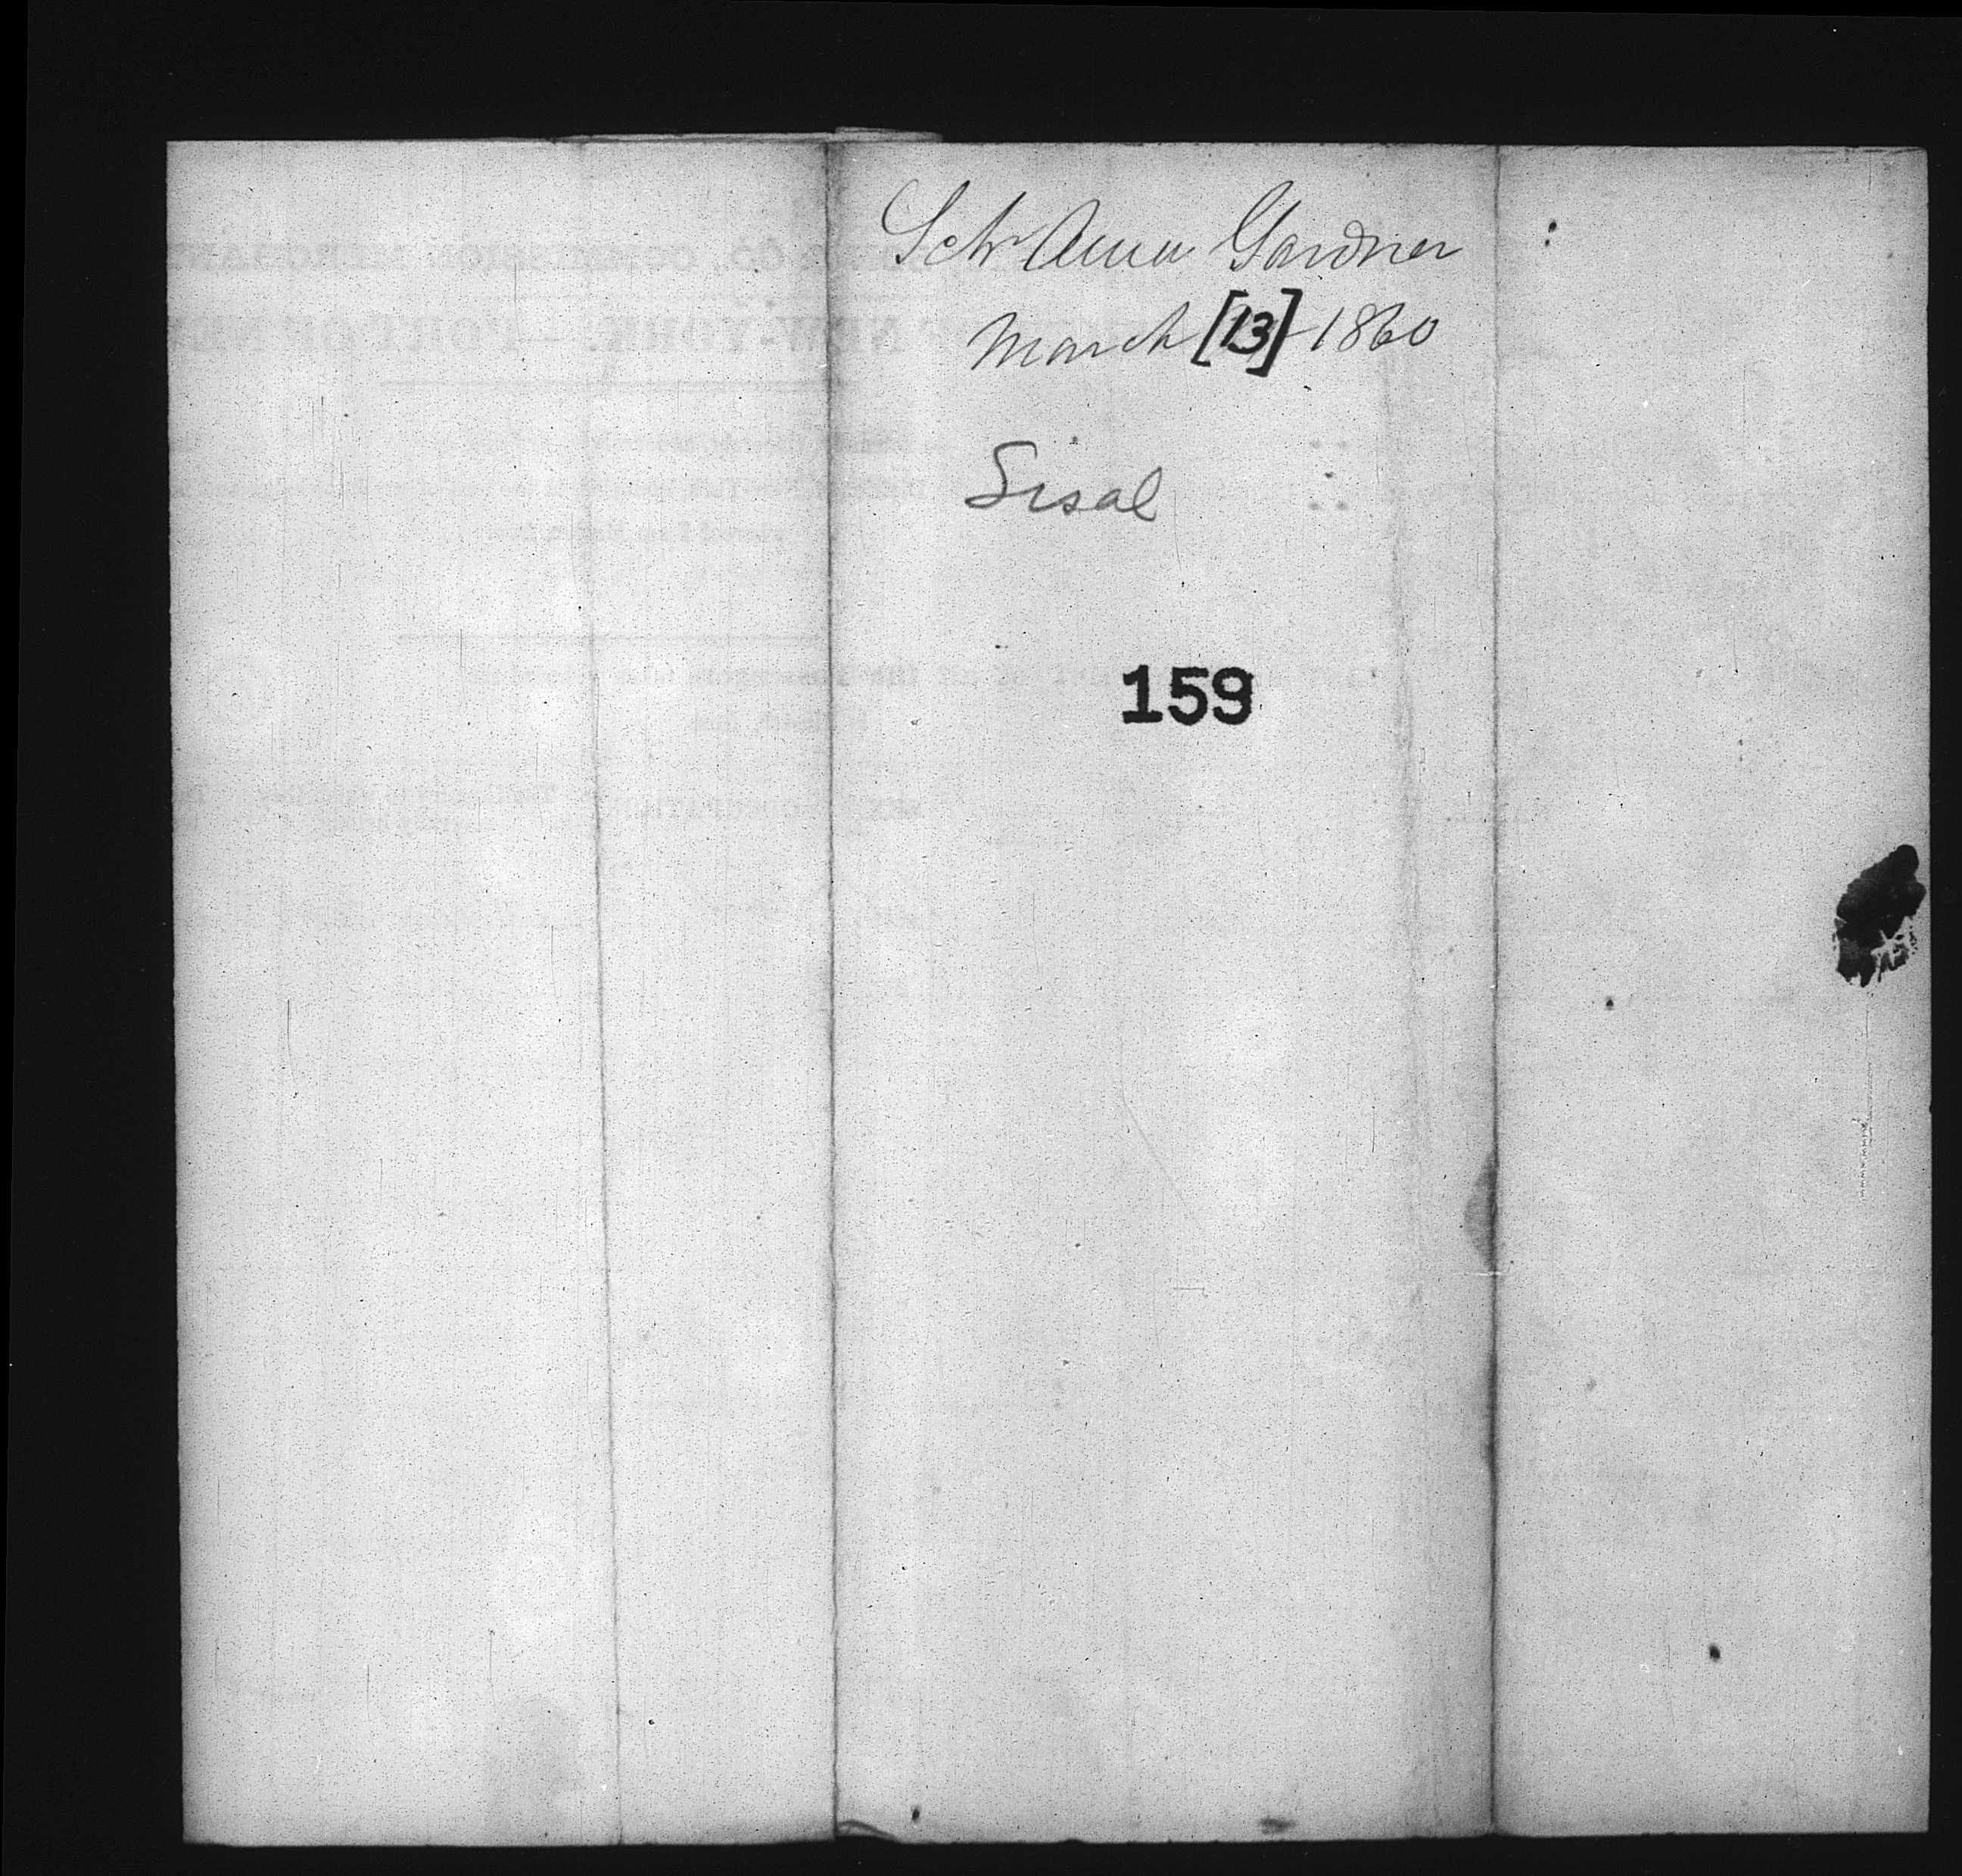 Schr Anna Gardner
March [13] 1860
Sisal
159